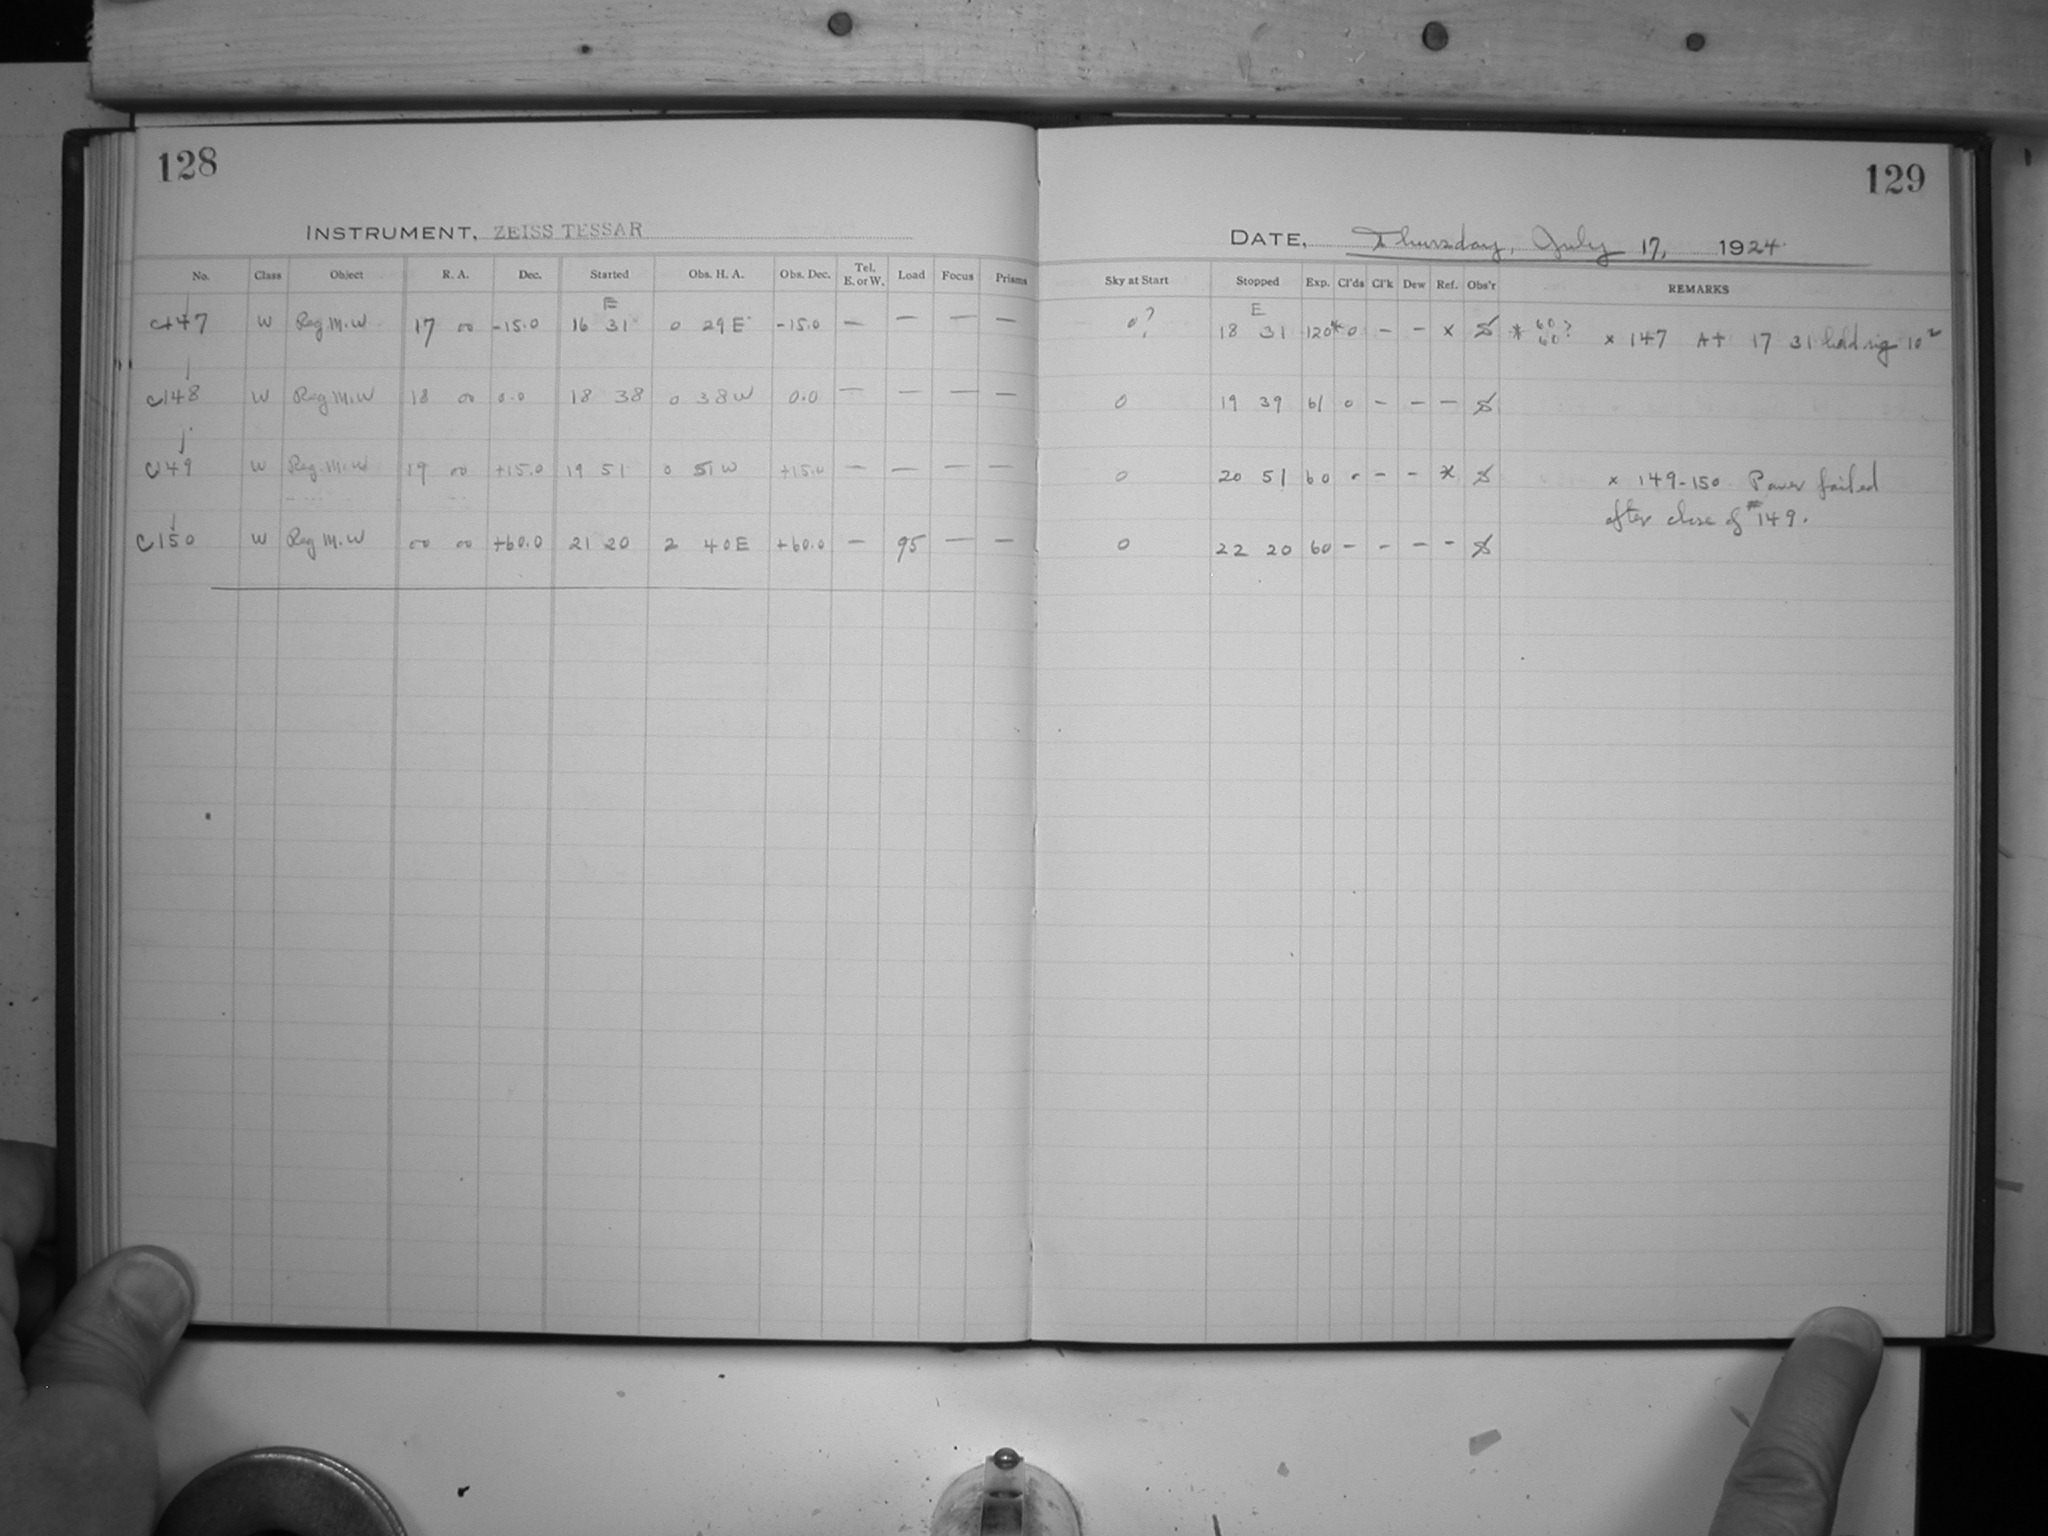 128
INSTRUMENT, ZEISS TESSAR
No. Class Object R. A. Dec. Started Obs. H. A. Obs. Dec. Tel. E. or W. Load Focus Prisms
E
C147 W Reg M.W 17 00 -15.0 16 31 0 29 E -15.0 — — — —
C148 W Reg M.W 18 00 0.0 18 38 0 38 W 0.0 — — — —
C149 W Reg. M.W 19 00 +15.0 19 51 0 51 W +15.0 — — — —
C150 W Reg M.W 00 00 +60.0 21 20 2 40 E +60.0 — 95 — —
129
DATE, Thursday, July 17, 1924.
Sky at Start Stopped Exp. Cl'ds Cl'k Dew Ref. Obs'r REMARKS
E
0? 18 31 120* 0 – – x * 60 60 ? x 147 At 17 31
0 19 39 61 0 – – –
0 20 51 60 – – x x 149-150. Power failed
after close of #149.
0 22 20 60 – – – –